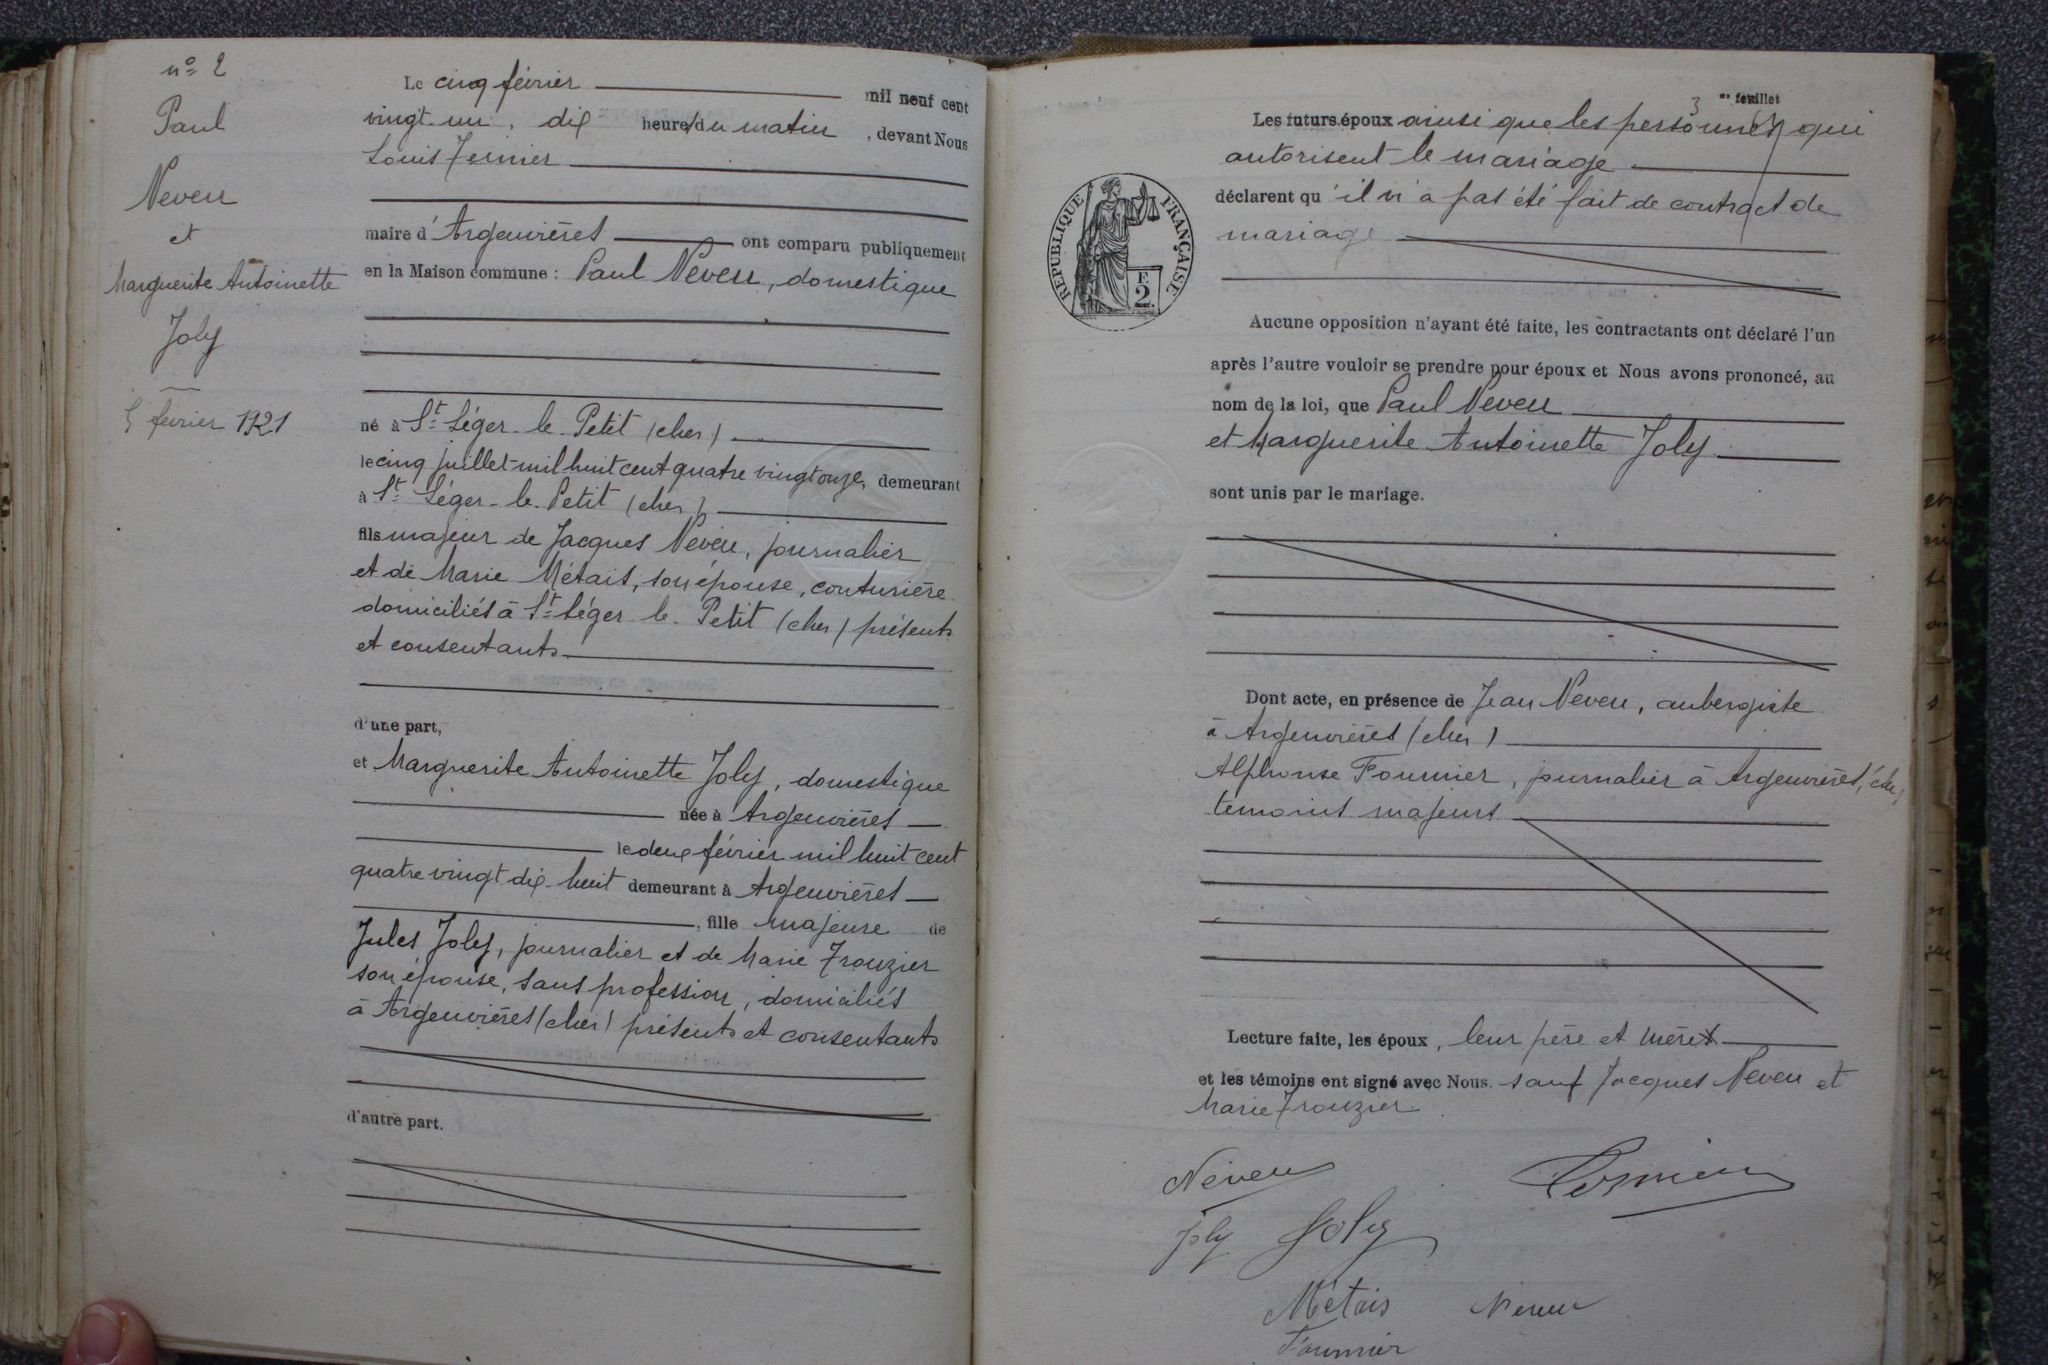 nº 2
Paul
Neveu
et
Marguerite Antoinette
Joly
5 février 1921
Le cinq février mil neuf cent
vingt-un, dix heures du matin, devant Nous
Louis
maire d'Argenvières ont comparu publiquement
en la Maison commune : Paul Neveu, domestique
né à St Léger-le-Petit (cher)
le cinq juillet mil huit cent quatre vingt onze, demeurant
à St Léger-le-Petit (cher)
fils majeur de Jacques Neveu, journalier
et de Marie Métais, son épouse, couturière
domiciliés à St Léger-le-Petit (cher) présents
et consentants
d'une part,
et Marguerite Antoinette Joly, domestique
née à Argenvières
le deux février mil huit cent
quatre vingt dix-huit demeurant à Argenvières
, fille majeure de
Jules Joly, journalier et de Marie Trouzier
son épouse, sans profession, domiciliés
à Argenvières (cher) présents et consentants
d'autre part.
3 me feuillet
Les futurs époux ainsi que les personnes qui
autorisent le mariage
déclarent qu'il n'a pas été fait de contract de
mariage
RÉPUBLIQUE FRANÇAISE
F.
2
Aucune opposition n'ayant été faite, les contractants ont déclaré l'un
après l'autre vouloir se prendre pour époux et Nous avons prononcé, au
nom de la loi, que Paul Neveu
et Marguerite Antoinette Joly
sont unis par le mariage.
Dont acte, en présence de Jean Neveu, aubergiste
à Argenvières (cher)
Alphonse Fournier, journalier à Argenvières, cher,
temoins majeurs
Lecture faite, les époux, leur père et mère
et les témoins ont signé avec Nous. sauf Jacques Neveu et
Marie Trouzier.
Neveu
Joly Joly
Métais Neveu
Fournier